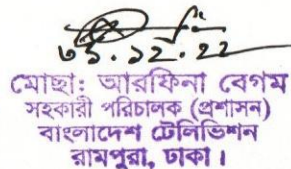 ৩১.১২.২২
মোছা: আরফিনা বেগম
সহকারী পরিচালক (প্রশাসন)
বাংলাদেশ টেলিভিশন
রামপুরা, ঢাকা।